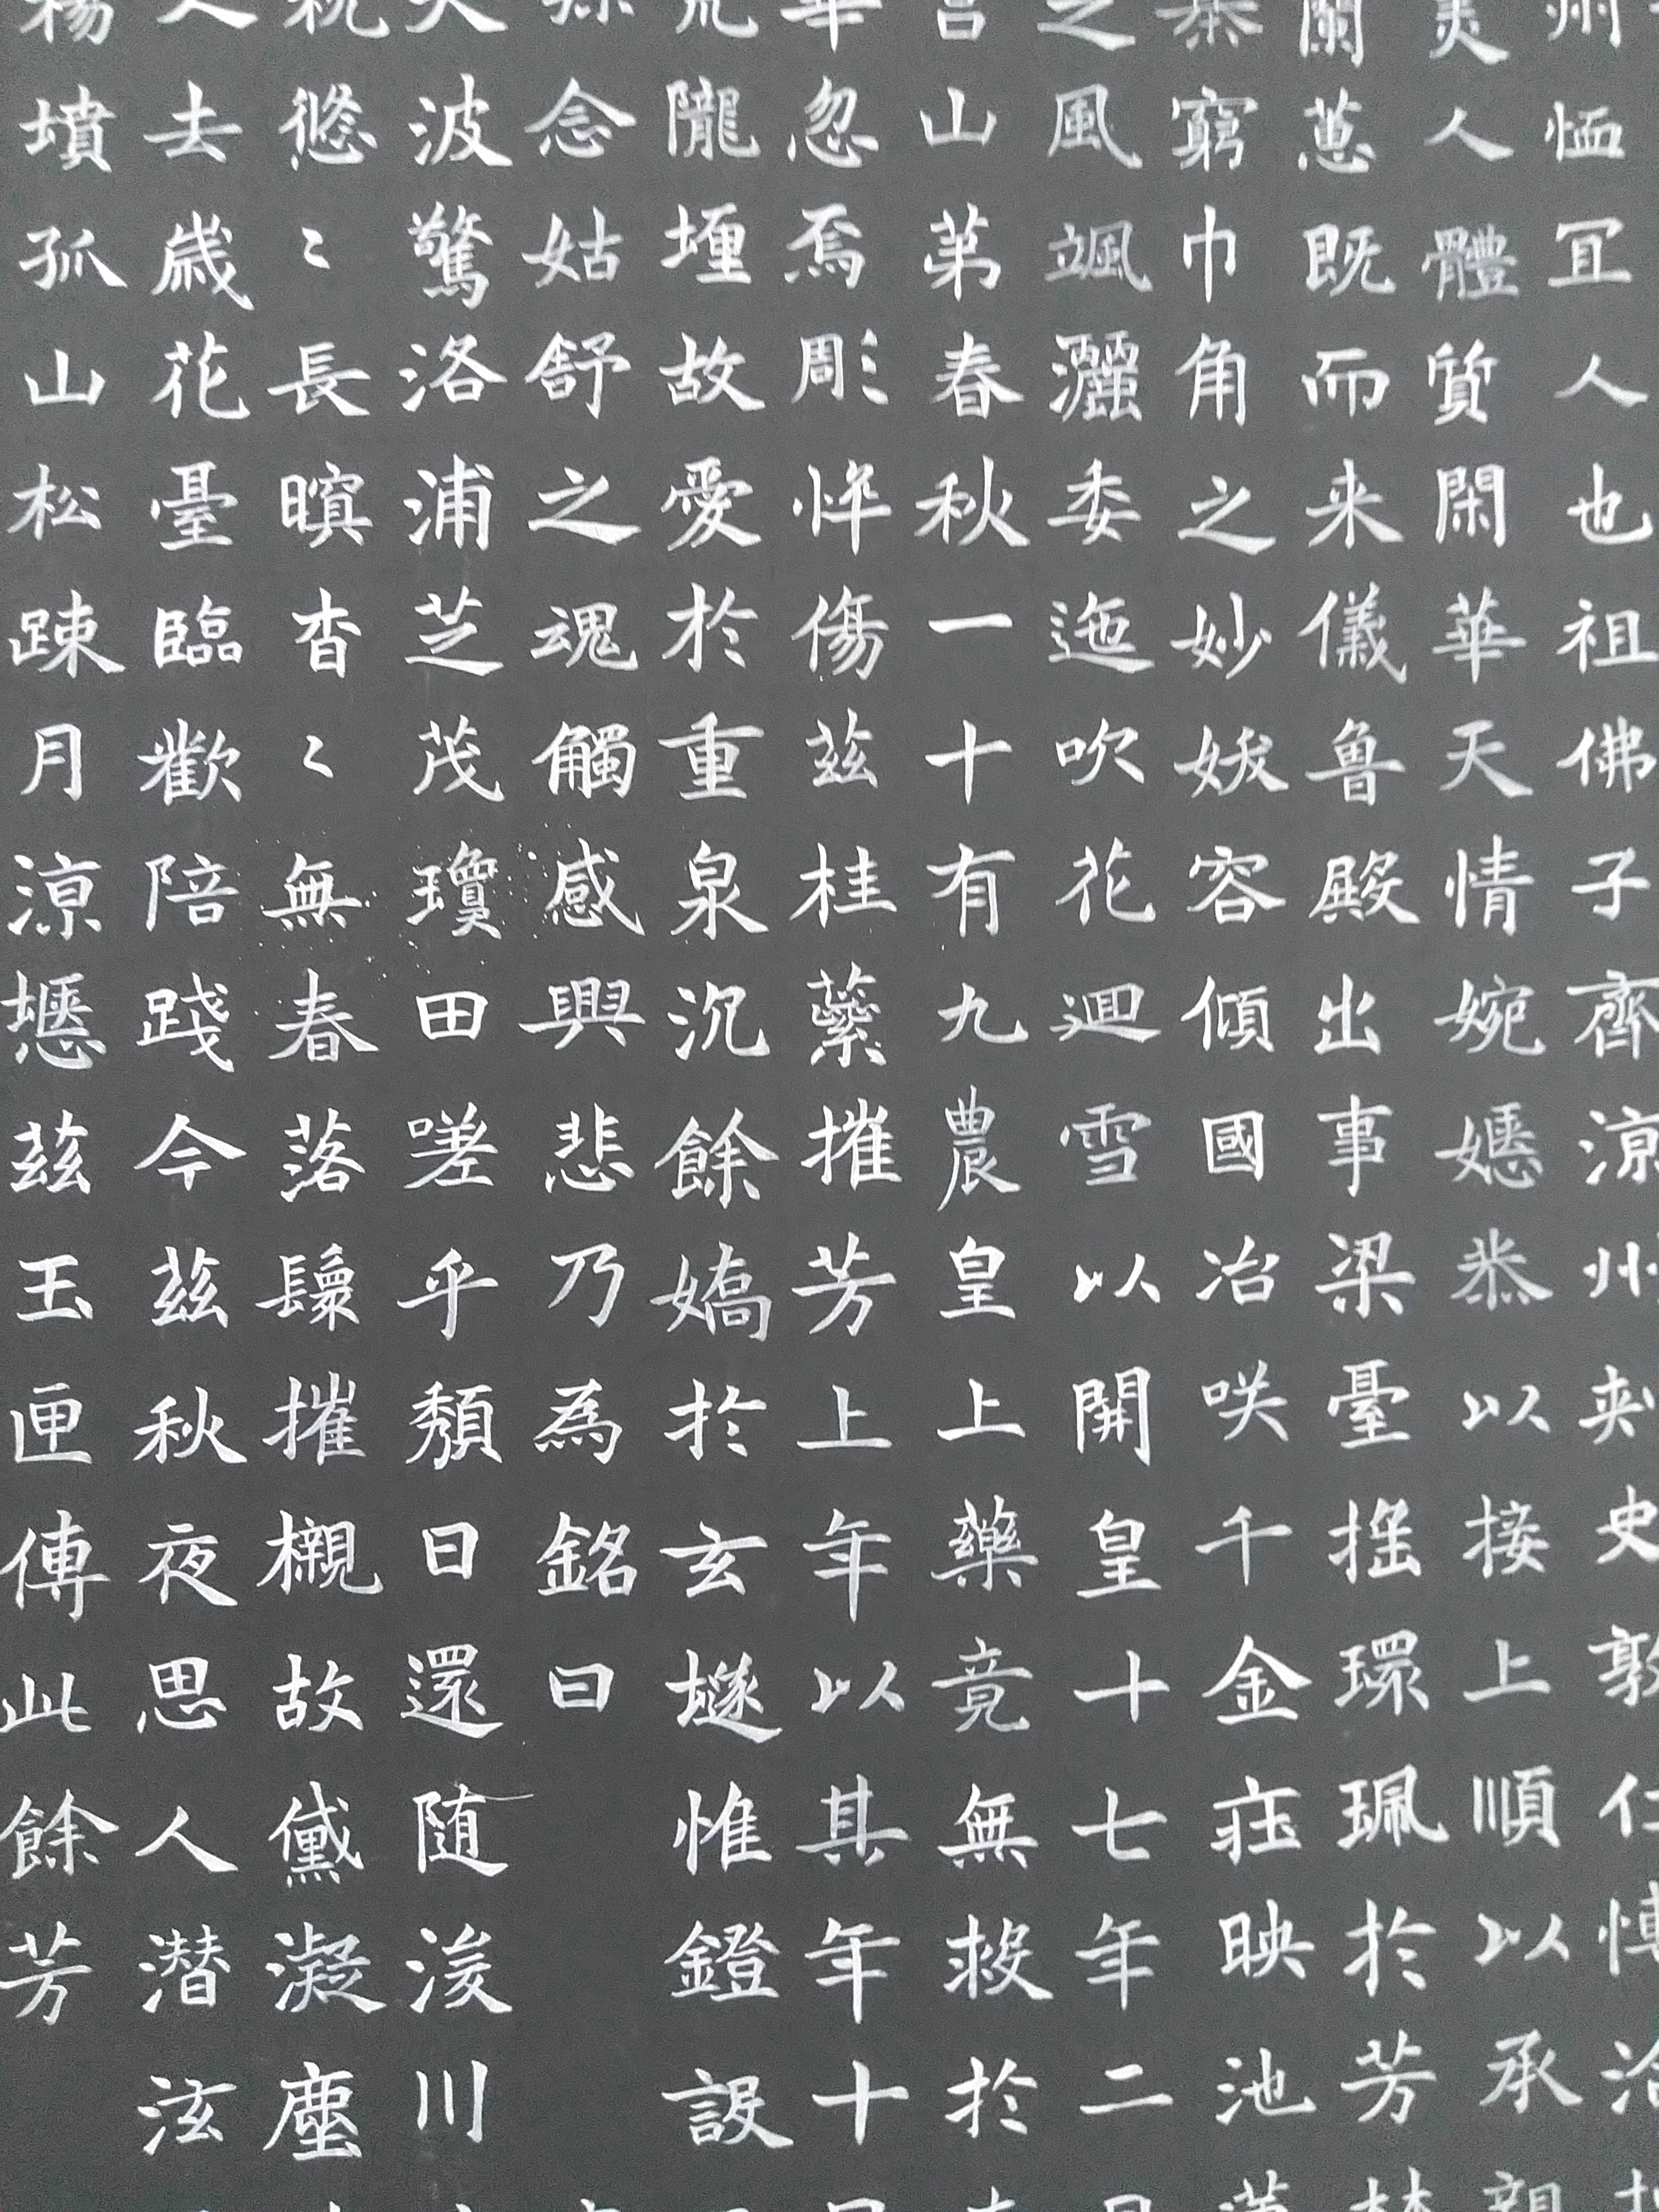 州恤冝人也祖佛子齊涼州刾史敦仁博洽
美人體質閑華天情婉嫕恭以接上順以承親
蘭蕙既而来儀魯殿出事梁臺搖環珮於芳林
恭窮巾角之妙妖容傾國冶咲千金莊映池蓮
之風颯灑委迤吹花迴雪以開皇十七年二月
宮山第春秋一十有九農皇上上藥竟無救於
華忽焉彫悴傷茲桂蘂摧芳上年以其年十月
荒隴埋故愛於重泉沉餘嬌於玄燧惟鐙設
念姑舒之魂觸感興悲乃為銘曰
波驚洛浦芝茂瓊田嗟乎頹日還随浚川
悠〻長暝杳〻無春落鬟摧櫬故黛凝塵
人去歳花臺臨歡陪踐今茲秋夜思人潜泫
楊墳孤山松踈月涼壥茲玉匣傳此餘芳